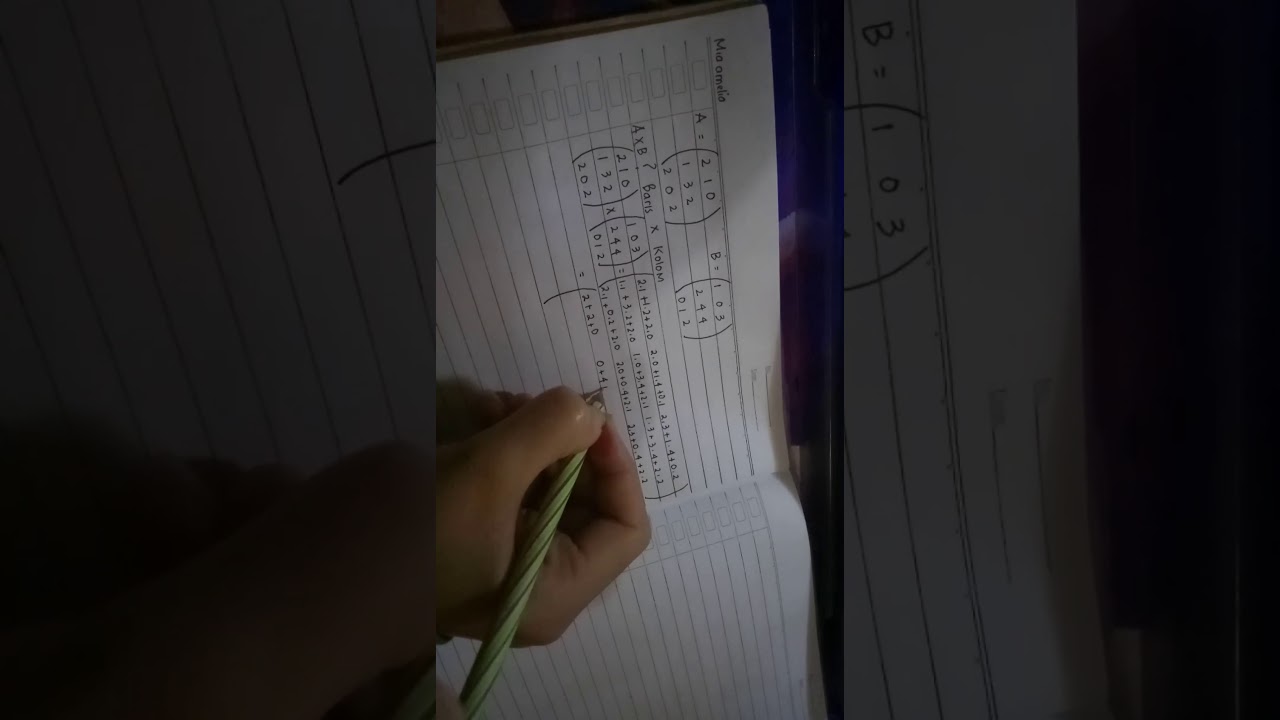 Mia amelia
A = (2 1 0) B = (1 0 3)
(1 3 2) (2 4 4)
(2 0 2) (0 1 2)
A x B ? Baris x Kolom
(2 1 0) (1 0 3) (2.1+1.2+2.0 2.0+1.4+0.1 2.3+1.4+0.2)
(1 3 2) x (2 4 4) = (1.1+3.2+2.0 1.0+3.4+2.1 1.3+3.4+2.2)
(2 0 2) (0 1 2) (2.1+0.2+2.0 2.0+0.4+2.1 2.3+0.4+2.2)
= (2+2+0 0+4
B = (1 0 3)